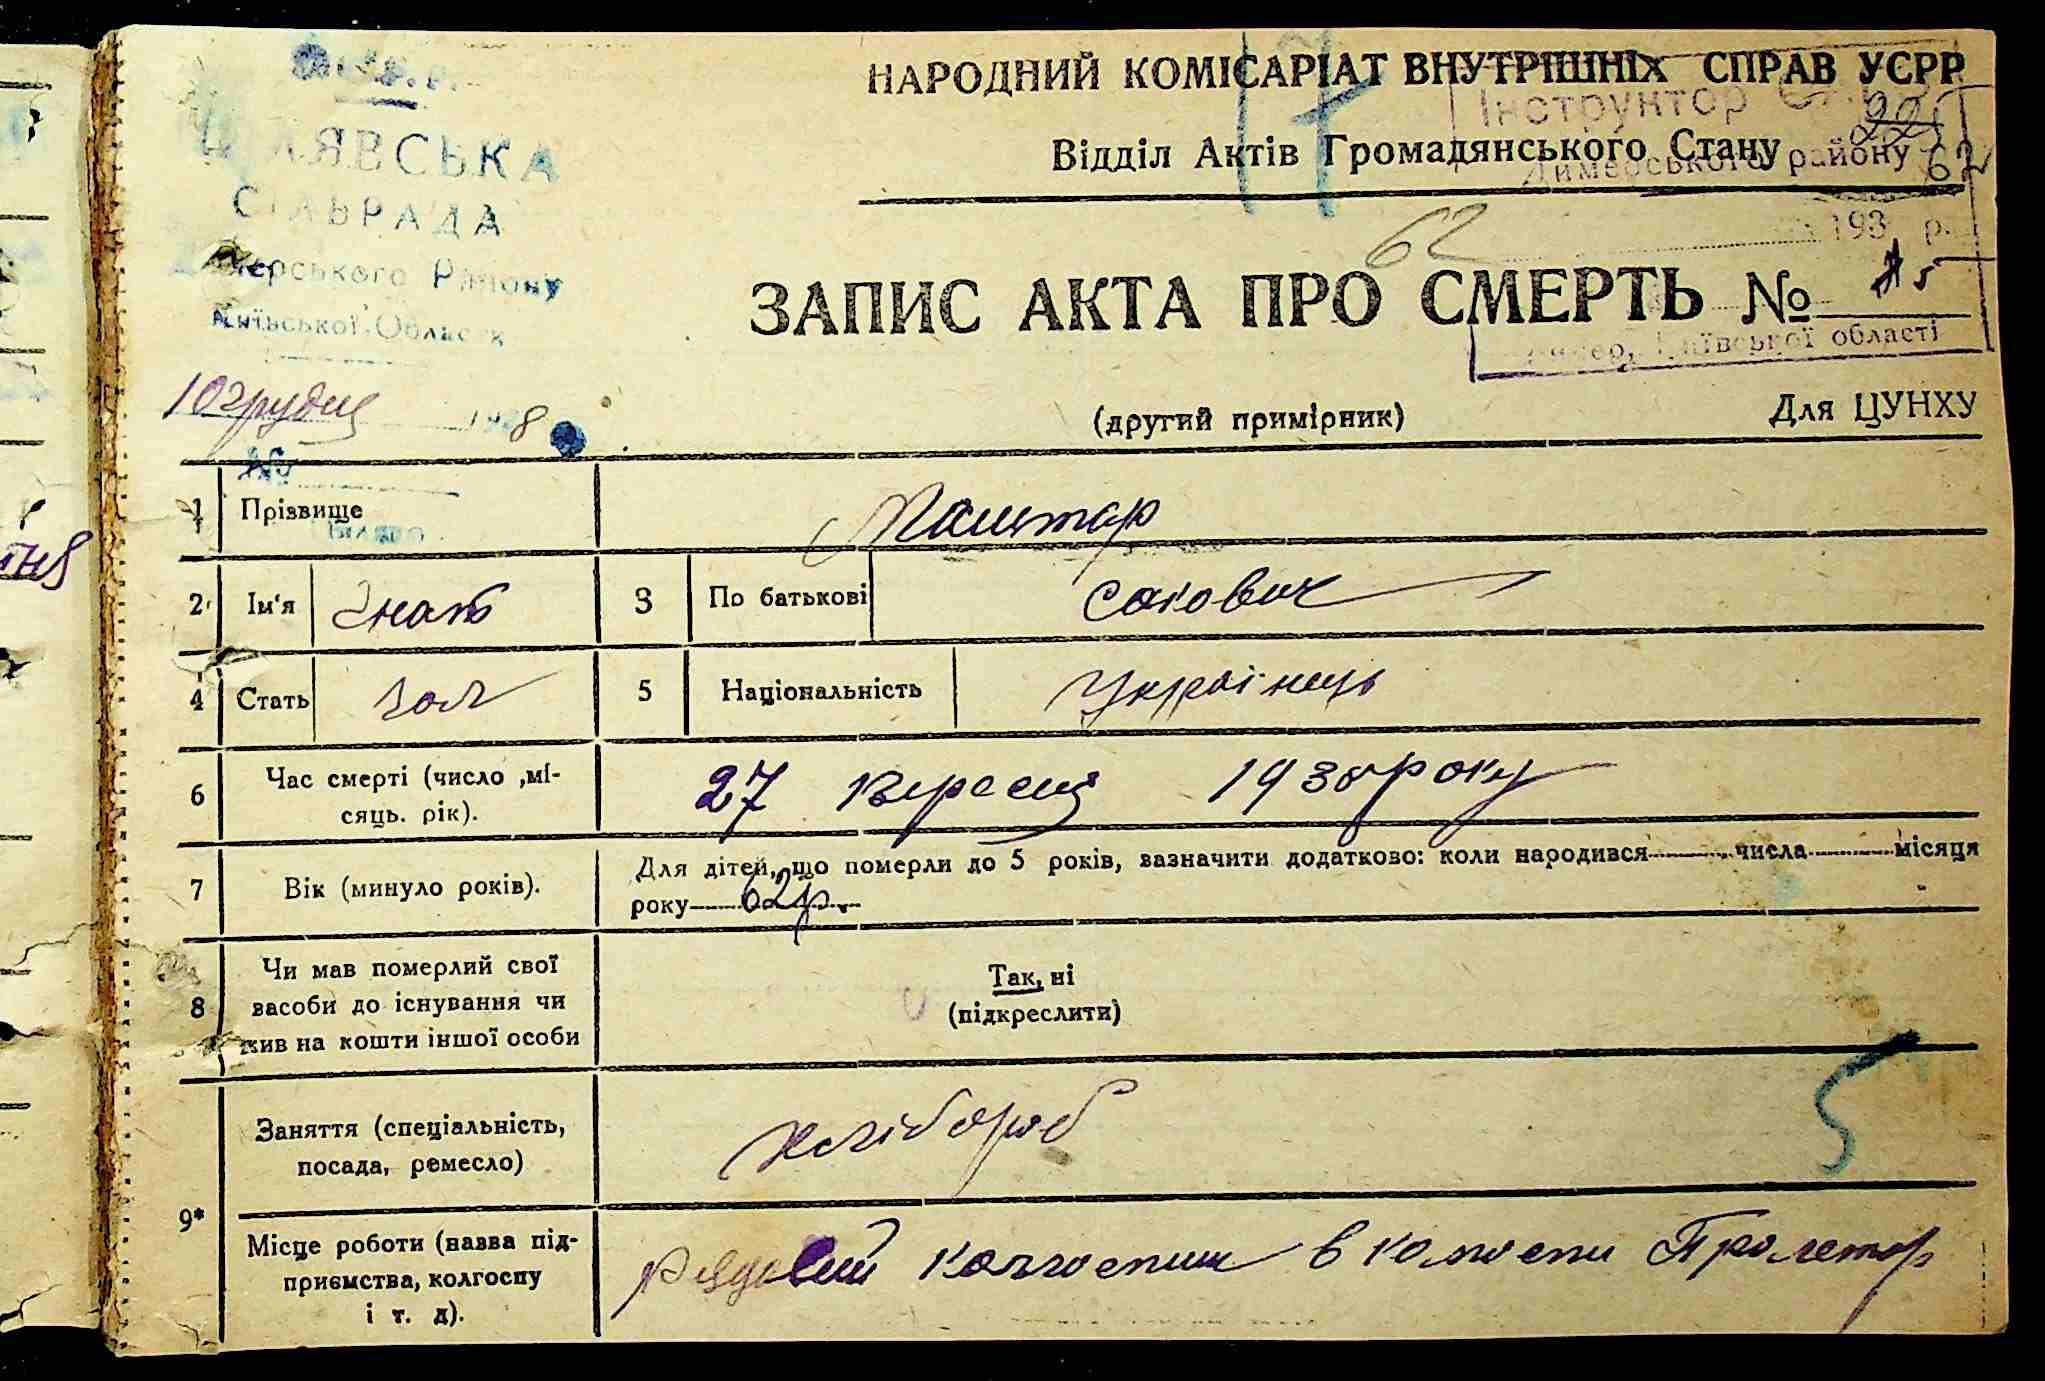 НАРОДНИЙ КОМІСАРІАТ ВНУТРІШНІХ СПРАВ УСРР
Відділ Актів Громадянського Стану
Інструктор
Димерського району
22
62
ЛЯВСЬКА
СІЛЬРАДА
Району
Київської Области
62
193 р.
ЗАПИС АКТА ПРО СМЕРТЬ № 5
Київської області
10 грудня 8
(другий примірник)
Для ЦУНХУ
№
1 Прізвище
2 Ім'я Гнат 3 По батькові Сакович
4 Стать чол 5 Національність Українець
6 Час смерті (число ,мі-
сяць. рік).
27 Вересня 1938 року
7 Вік (минуло років).
Для дітей, що померли до 5 років, зазначити додатково: коли народився числа місяця
року 62 р.
8 Чи мав померлий свої
засоби до існування чи
жив на кошти іншої особи
Так, ні
(підкреслити)
Заняття (спеціальність,
посада, ремесло)
хлібороб
5
9*
Місце роботи (назва під-
приємства, колгоспу
і т. д).
Рядовий колгоспник в колгоспи Пролетар